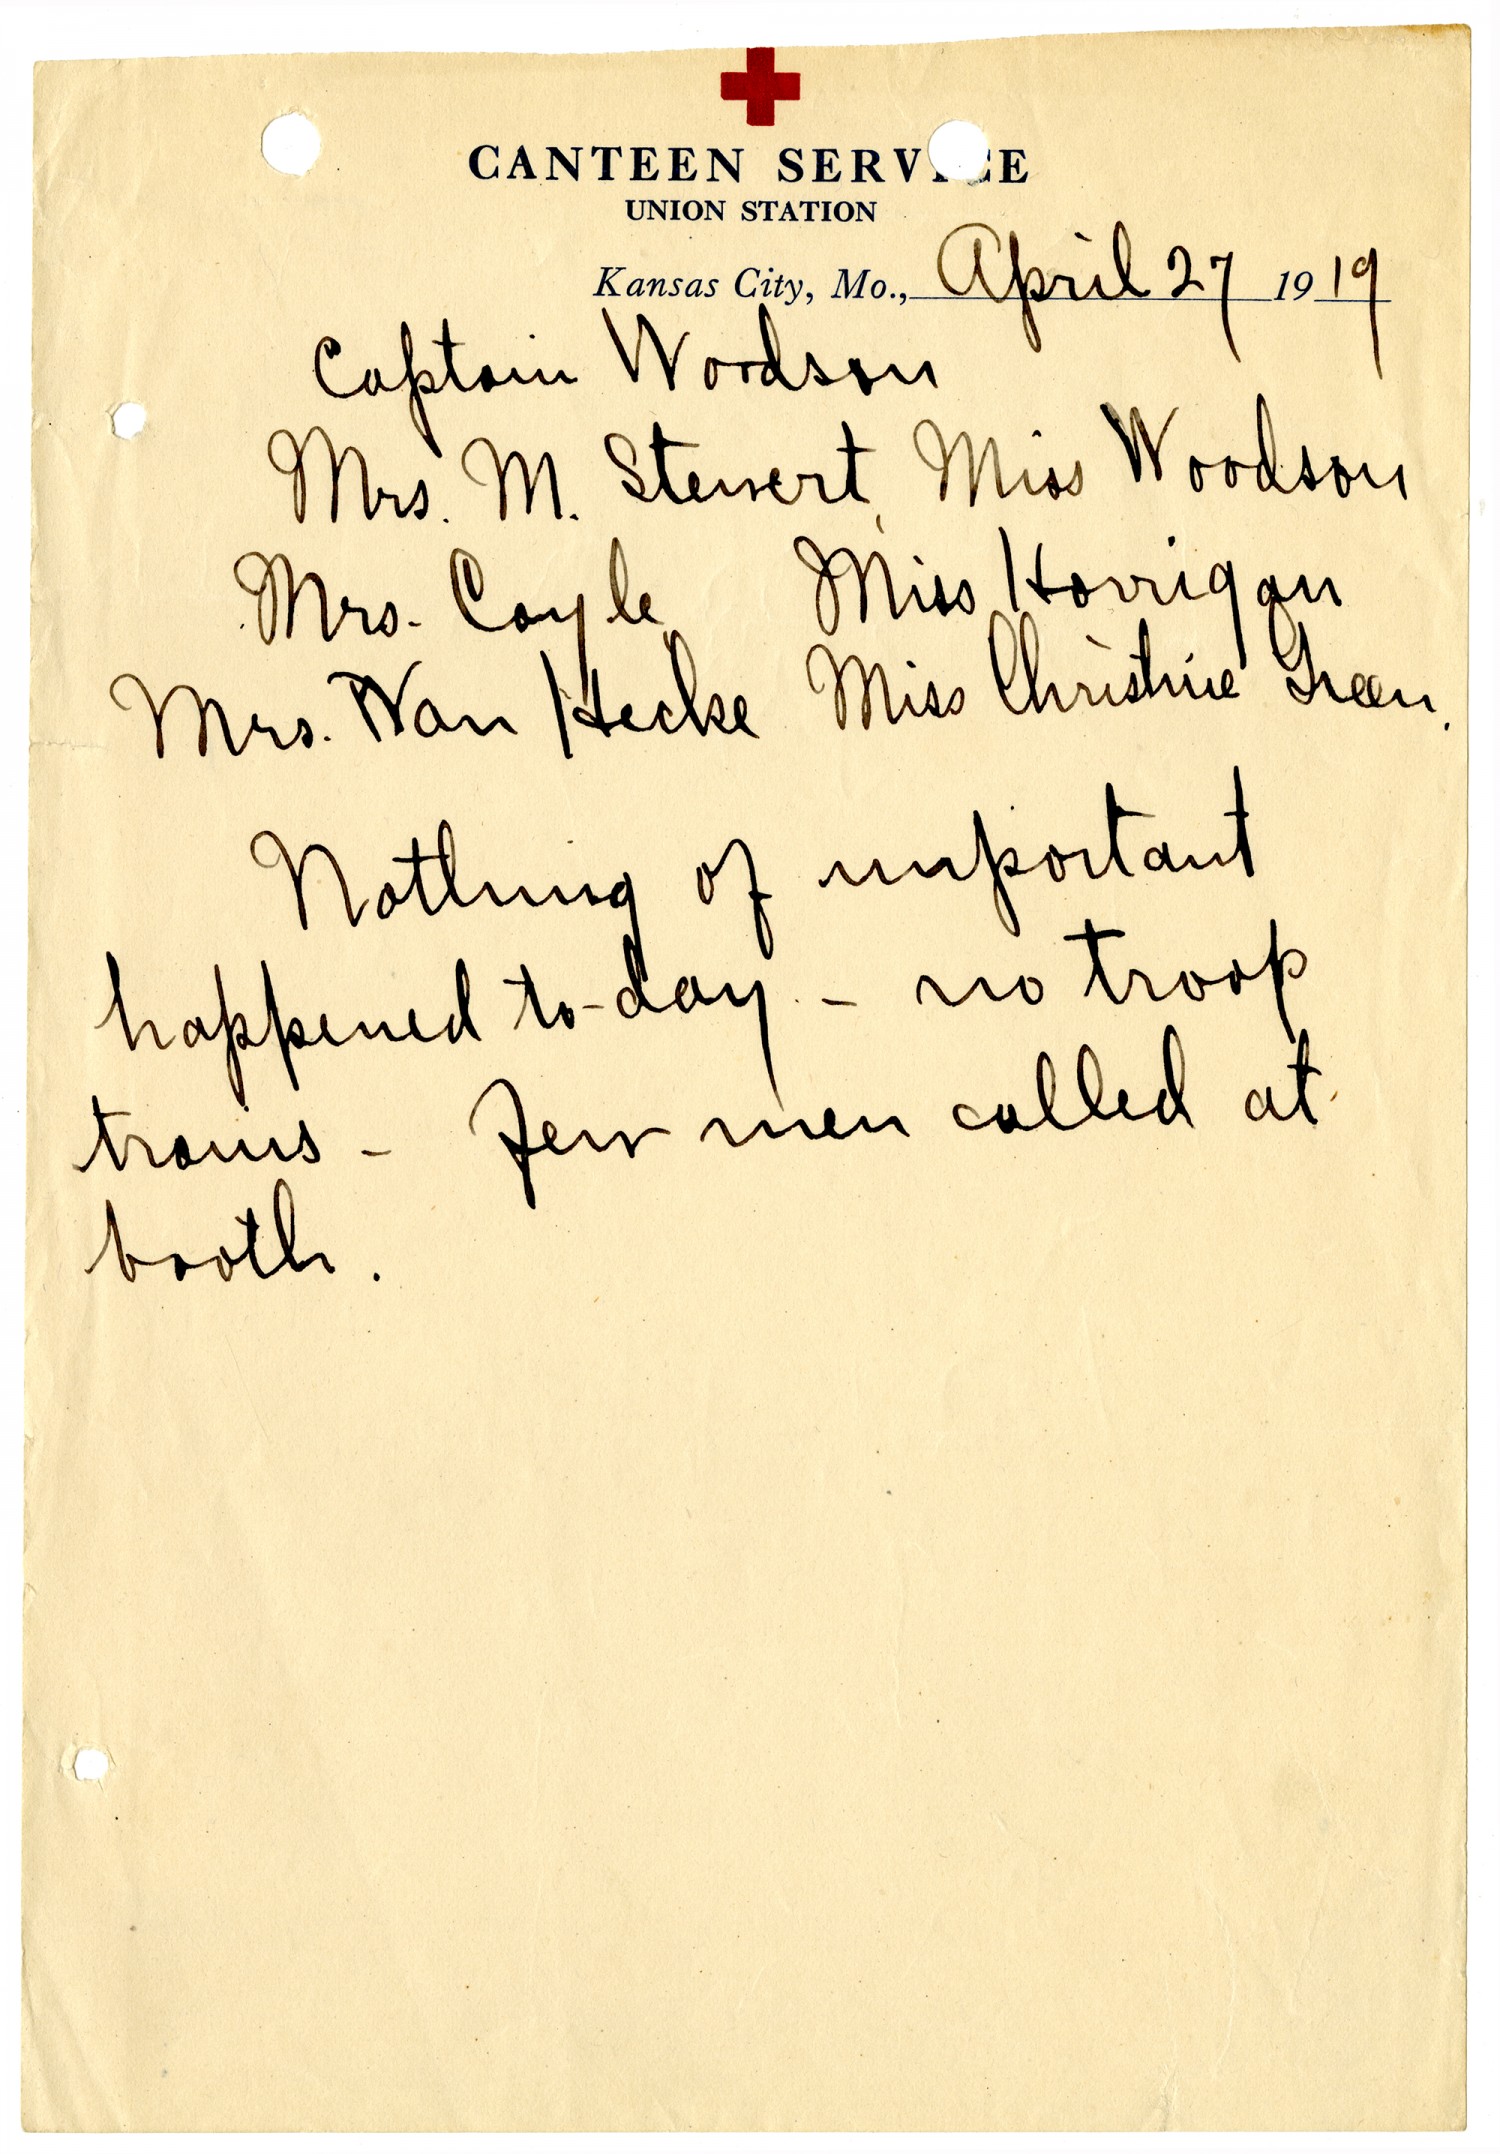 CANTEEN SERVICE
UNION STATION
Kansas City, Mo., April 27 1919
Captain Woodson
Mrs. M. Stewert, Miss Woodson
Mrs. Coyle, Miss Horrigan
Mrs. Van Hecke Miss Christine Green.
Nothing of important
happened to-day - no troop
trains - Few men called at
booth.